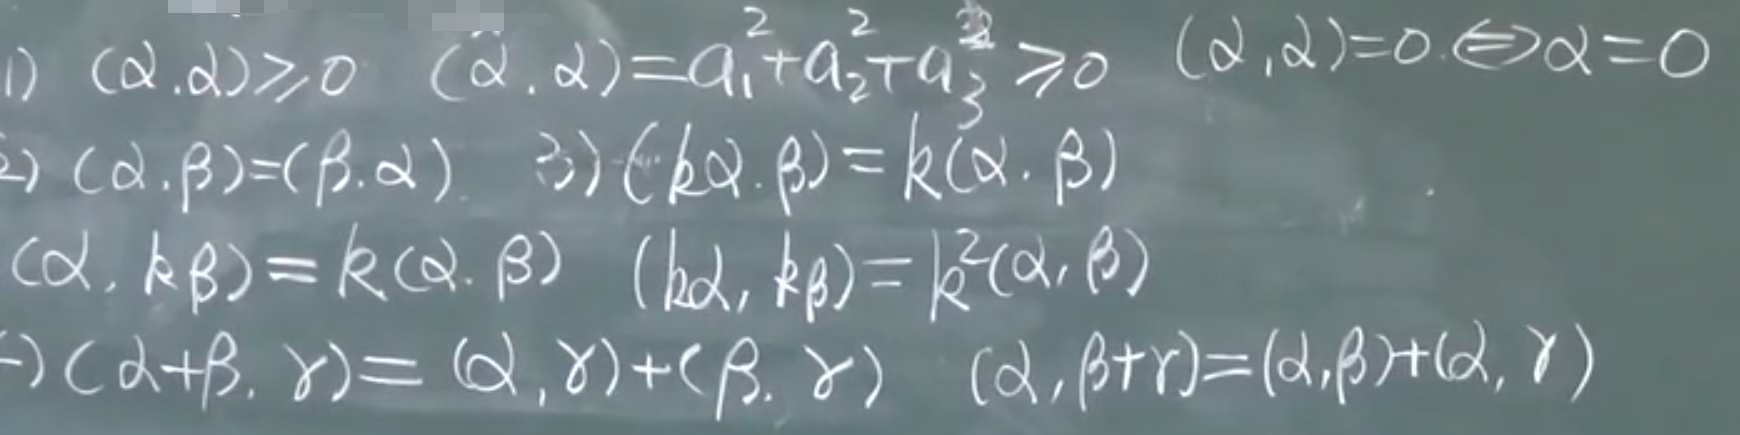 1) (α.α)⩾0 (α.α)=a₁²+a₂²+a₃²⩾0 (α,α)=0.⇔α=0
2) (α.β)=(β.α). 3) (kα.β)=k(α.β)
(α.kβ)=k(α.β) (kα,kβ)=k²(α,β)
) (α+β.γ)=(α,γ)+(β.γ) (α,β+γ)=(α,β)+(α,γ)